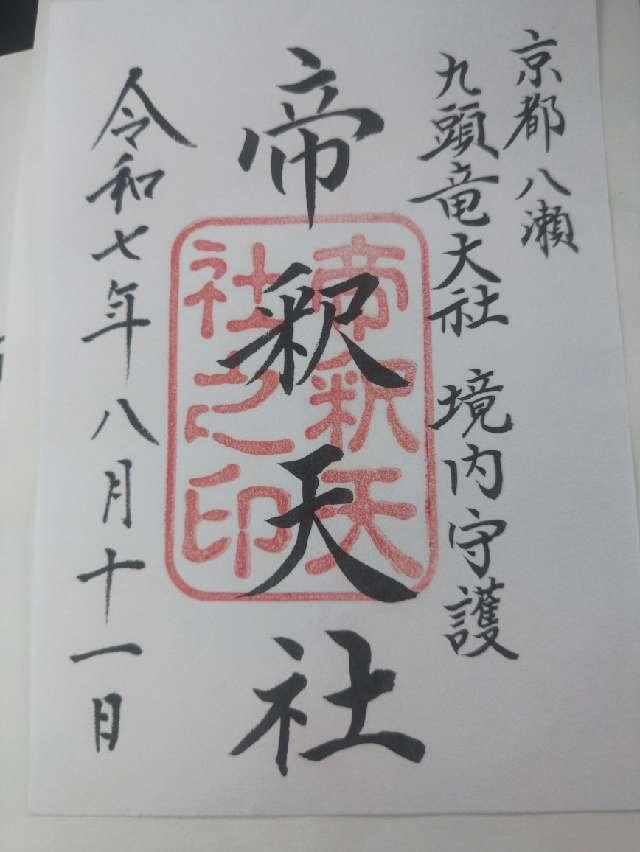 京都八瀬
九頭竜大社 境内守護
帝釈天社
帝釈天
社之印
令和七年八月十一日